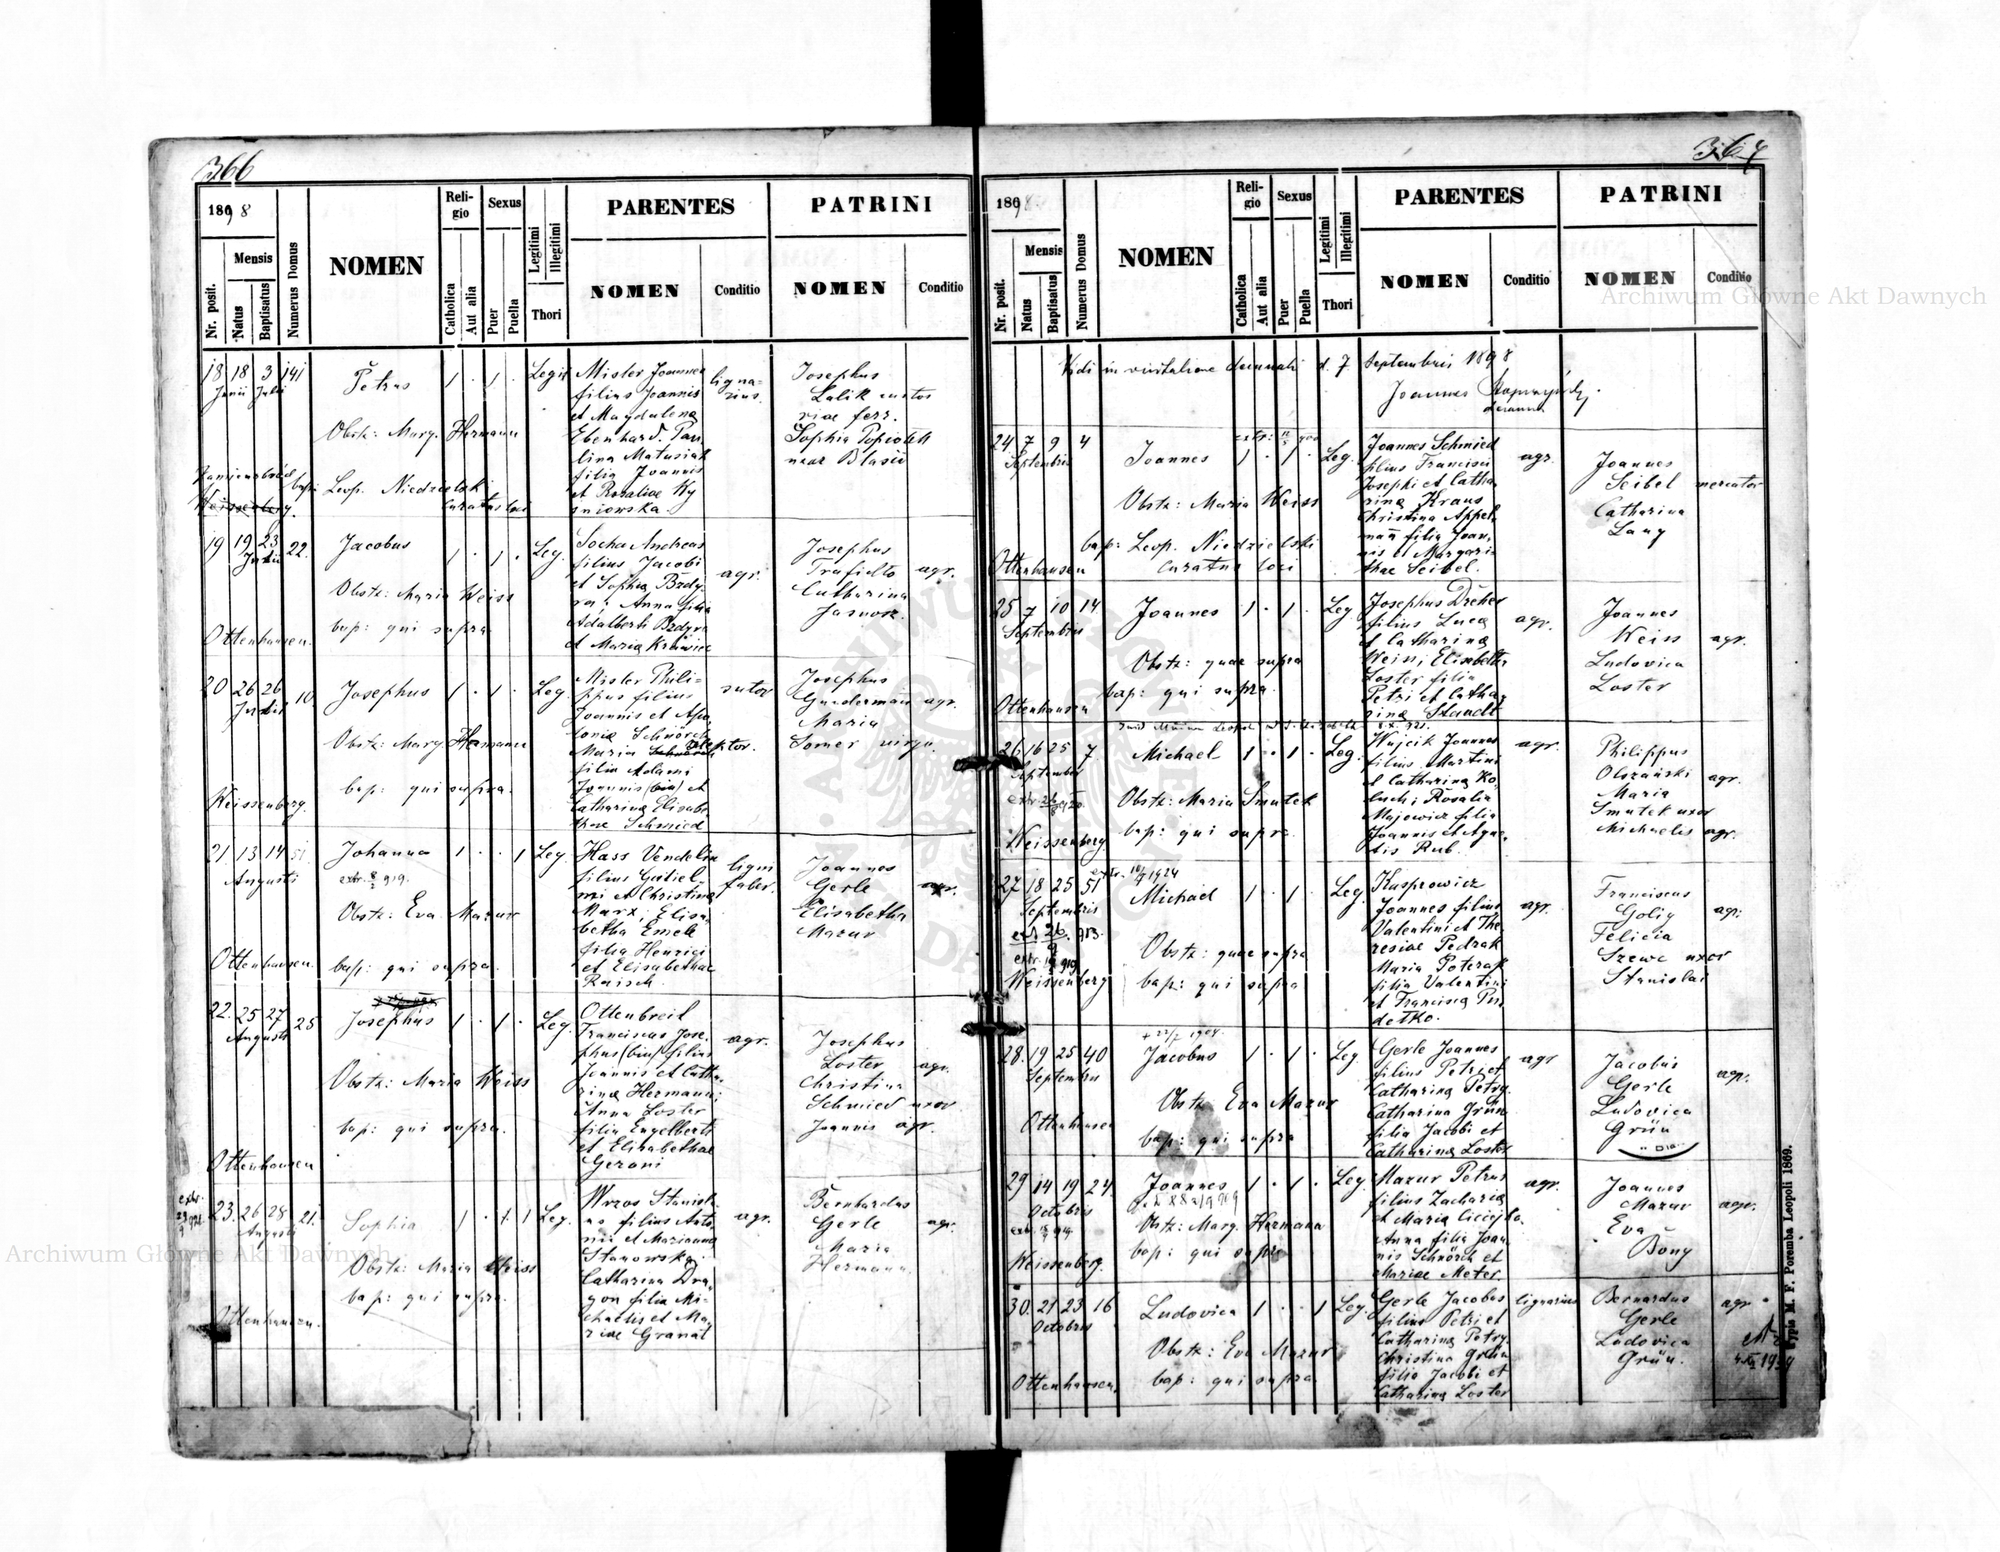 366
1898
Nr. posit.
Mensis
Natus
Baptisatus
Numerus Domus
NOMEN
Religio
Catholica
Aut alia
Sexus
Puer
Puella
Legitimi
Illegitimi
Thori
PARENTES
NOMEN
Conditio
PATRINI
NOMEN
Conditio
18 18 3 141
Junii Julii
Petrus
1 . 1 .
Mister Joannes
filius Joannis
et Magdalena
Eberhard. Pau
lina Matusiak
filia Joannis
et Rosaliae Wy
sniowska.
ligna-
rius.
Josephus
Lalik custos
viae ferr.
Sophia Popiołek
uxor Blasii
Obstr: Marg. Hermann
bapt: Leop. Niedzielski
Curatus loci
Weissenberg.
19 19 23 22.
Julii
Jacobus
1 . 1 .
Leg.
Socha Andreas
filius Jacobi
et Sophia Bzdy-
ra; Anna filia
Adalberti Bzdyra
et Maria Krawiec
agr.
Josephus
Trafidło
Catharina
Jarosz.
agr.
Obstr: Maria Weiss
bap: qui supra
Ottenhausen.
20 26 26 10.
Josephus
1 . 1 .
Leg.
Mister Phili-
ppus filius
Joannis et Apo-
lonia Schnörch
Maria
filia Adami
Joannis (bin) et
Catharina Elisabe
thae Schmied
sutor
Josephus
Gudermann
Maria
Somer virgo.
agr.
Obstr: Marg. Hermann
bap: qui supra.
Weissenberg.
21 13 14 51
Augusti
Johanna
1 . . 1
Leg.
extr. 8/2 919.
Hass Vendelin
filius Guliel-
mi et Christina
Marx; Elisa-
betha Emele
filia Henrici
et Elisabethae
Raisch.
ligni
faber.
Joannes
Gerle
Elisabetha
Mazur
agr.
Obstr: Eva Mazur
bap: qui supra.
Ottenhausen.
22. 25 27 25
Augusti
Josephus
1 . 1 .
Leg.
Ottenbreit
Franciscus Jose-
phus (bin) filius
Joannis et Catha-
rina Hermann;
Anna Loster
filia Engelberti
et Elisabethae
Gerani
agr.
Josephus
Loster
Christina
Schmied uxor
Joannis agr.
agr.
Obstr: Maria Weiss
bap: qui supra.
Ottenhausen
23. 26 28 21.
Augusti
Sophia
1 . 1
Leg.
Wrzos Stanisla-
us filius Anto-
nii et Marianna
Stanowska.
Catharina Dra-
gon filia Mi-
chaelis et Ma-
riae Granat
agr.
Bernhardus
Gerle
Maria
Hermann.
agr.
Obstr: Maria Weiss
bap: qui supra.
Ottenhausen.
367
1898
Nr. posit.
Mensis
Natus
Baptisatus
Numerus Domus
NOMEN
Religio
Catholica
Aut alia
Sexus
Puer
Puella
Legitimi
Illegitimi
Thori
PARENTES
NOMEN
Conditio
PATRINI
NOMEN
Conditio
Vidi in visitatione decanali d. 7 Septembris 1898
Joannes
decanus
24 7 9 4
Septembris
Joannes
1 . 1 .
Leg.
Joannes Schmied
filius Francisci
Josephi et Catha-
rina Kraus
Christina Appel-
mann filia Joan-
nis et Margari-
thae Seibel.
agr.
Joannes
Seibel
Catharina
Lang
mercator
Obstr: Maria Weiss
bap: Leop. Niedzielski
Curatus loci
Ottenhausen
25 7 10 14
Septembris
Joannes
1 . 1 .
Leg
Josephus Dreher
filius Luca
et Catharina
Wein; Elisabetha
Loster filia
Petri et Catha-
rina Staudt
agr.
Joannes
Weiss
Ludovica
Loster
agr.
Obstr: quae supra
bap: qui supra.
Ottenhausen
26 16 25 7
September
Michael
1 . 1 .
Leg.
Wujcik Joannes
filius Martini
et Catharina Ko-
luch; Rosalia
Majewicz filia
Joannis et Agne-
tis Rub.
agr.
Philippus
Olszański
Maria
Smutek uxor
Michaelis agr.
agr.
Obstr: Maria Smutek
bap: qui supra.
Weissenberg
27 18 25 51
Septembris
Michael
1 . 1 .
Leg.
Kasprowicz
Joannes filius
Valentini et The-
resiae Pedrak
Maria Poterak
filia Valentini
et Francisca Pu-
detko.
agr.
Franciscus
Golig
Felicia
Szewc uxor
Stanislai
agr.
Obstr: quae supra
bap: qui supra
Weissenberg
28. 19 25 40
Septembris
+ 22/7 1904.
Jacobus
1 . 1 .
Leg
Gerle Joannes
filius Petri et
Catharina Petry.
Catharina Grün
filia Jacobi et
Catharina Loster
agr
Jacobus
Gerle
Ludovica
Grün
agr.
Obstr Eva Mazur
bap: qui supra
Ottenhausen
29 14 19 24.
Octobris
Joannes
1 . 1 .
Leg.
Mazur Petrus
filius Zacharia
et Maria Ciciejka.
Anna filia Joan-
nis Schnörch et
Mariae Meter.
agr.
Joannes
Mazur
Eva
Bony
agr.
Obstr: Marg. Hermann
bap: qui supra
Weissenberg.
30. 21 23 16
Octobris
Ludovica
1 . . 1
Leg.
Gerle Jacobus
filius Petri et
Catharina Petry.
Christina Grün
filia Jacobi et
Catharina Loster
lignarius
Bernardus
Gerle
Ludovica
Grün.
agr.
Obstr: Eva Mazur
bap: qui supra
Ottenhausen.
Typis M. F. Poremba Leopoli 1869.
Archiwum Główne Akt Dawnych
Archiwum Główne Akt Dawnych
ARCHIWUM GŁÓWNE AKT DAWNYCH